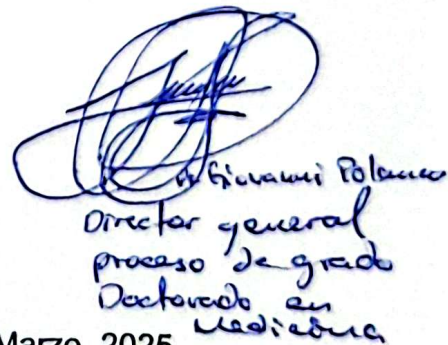 Giovanni Polanco
Director general
proceso de grado
Doctorado en
Medicina
Marzo, 2025